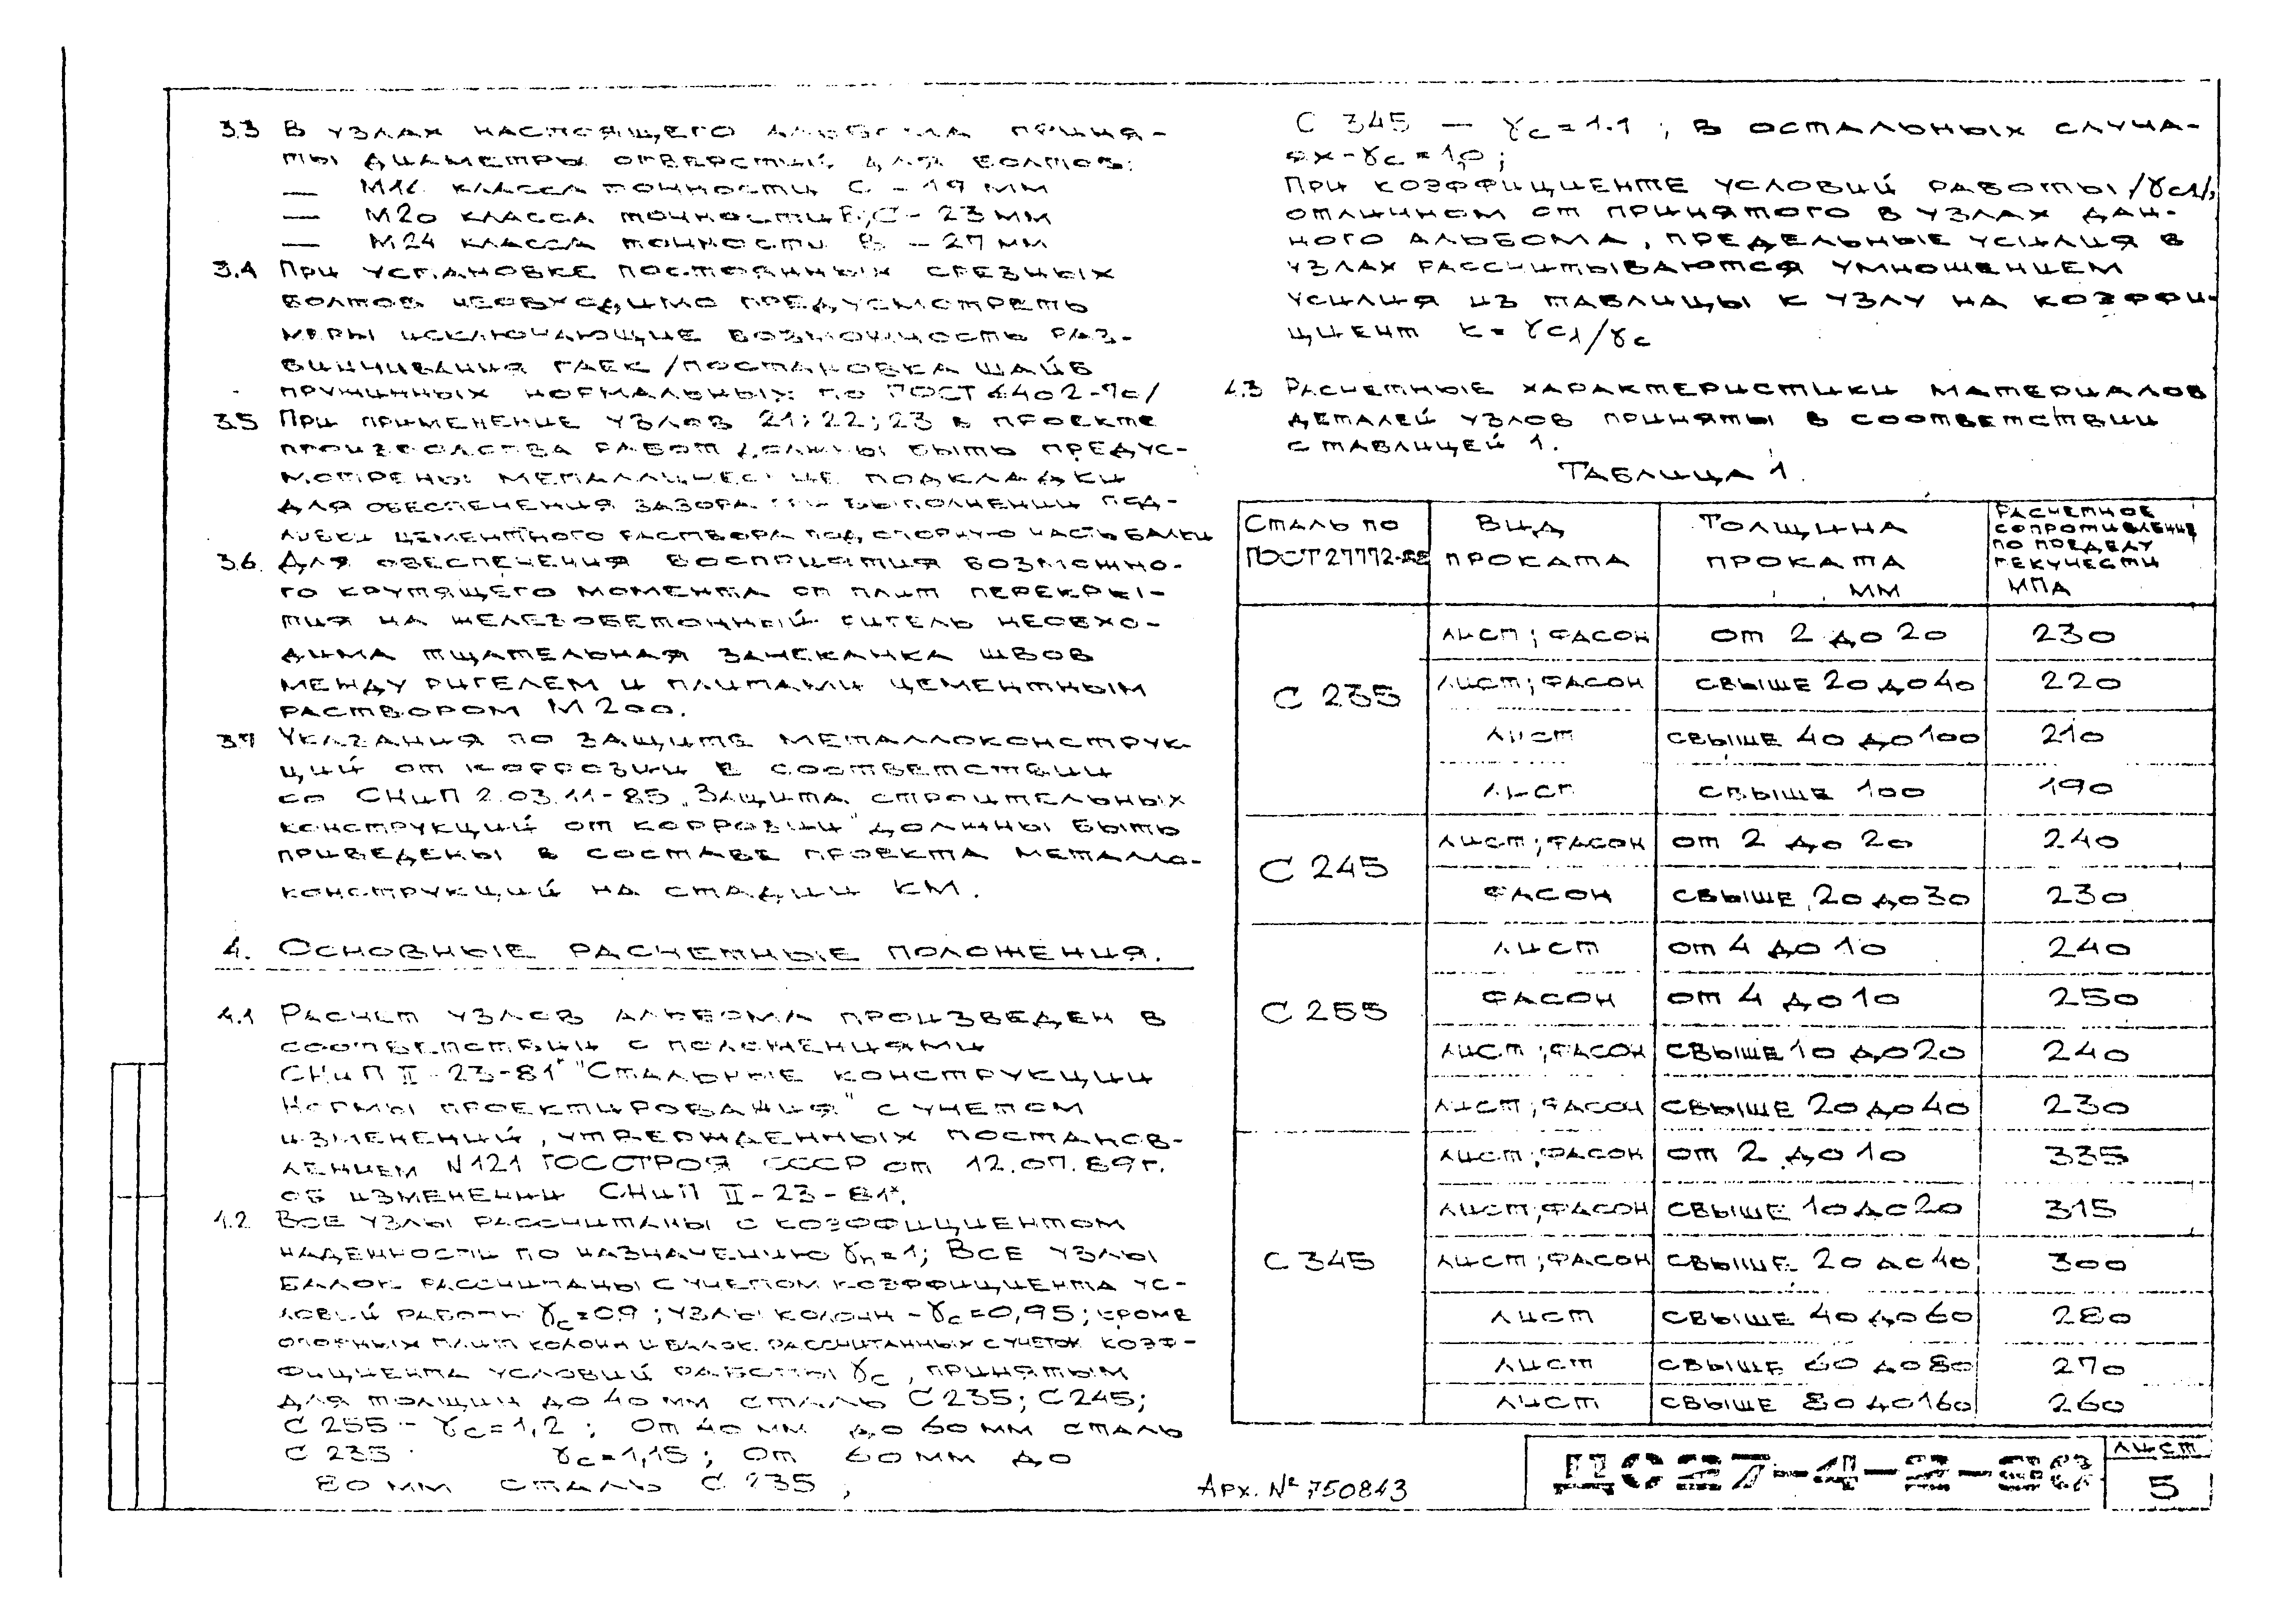 3.3 В узлах настоящего альбома приня-
ты диаметры отверстий для болтов:
— М16 класса точности С - 19 мм
— М20 класса точности В; С - 23 мм
— М24 класса точности В - 27 мм
3.4 При установке постоянных срезных
болтов необходимо предусмотреть
меры исключающие возможность раз-
винчивания гаек /постановка шайб
пружинных нормальных по ГОСТ 6402-70/
3.5 При применение узлов 21; 22; 23 в проекте
производства работ должны быть предус-
мотрены металлические подкладки
для обеспечения зазора при выполнении под-
ливки цементного раствора под опорную часть балки
3.6. Для обеспечения восприятия возможно-
го крутящего момента от плит перекры-
тия на железобетонный ригель необхо-
дима тщательная зачеканка швов
между ригелем и плитами цементным
раствором М 200.
3.7 Указания по защите металлоконструк-
ций от коррозии в соответствии
со СНиП 2.03.11-85 „Защита строительных
конструкций от коррозии" должны быть
приведены в составе проекта металло-
конструкций на стадии КМ.
4. Основные расчетные положения.
4.1 Расчет узлов альбома произведен в
соответствии с положениями
СНиП II-23-81* "Стальные конструкции
Нормы проектирования" с учетом
изменений, утвержденных постанов-
лением N121 Госстроя СССР от 12.07.89г.
об изменении СНиП II-23-81*.
4.2 Все узлы рассчитаны с коэффициентом
надежности по назначению γn=1; Все узлы
балок рассчитаны с учетом коэффициента ус-
ловий работы γc=0.9; узлы колонн - γc=0,95; кроме
опорных плит колонн и балок рассчитанных с учетом коэф-
фициента условий работы γc, принятым
для толщин до 40 мм сталь С 235; С 245;
С 255 - γc=1,2; От 40 мм до 60 мм сталь
С 235 γc=1,15; От 60 мм до
80 мм сталь С 235,
С 345 — γc=1.1; в остальных случа-
ях - γc=1,0;
При коэффициенте условий работы /γc1/,
отличном от принятого в узлах дан-
ного альбома, предельные усилия в
узлах рассчитываются умножением
усилия из таблицы к узлу на коэффи-
циент к= γc1/γc
4.3 Расчетные характеристики материалов
деталей узлов приняты в соответствии
с таблицей 1.
Таблица 1.
Сталь по ГОСТ 27772-88 Вид проката Толщина проката мм Расчетное сопротивление по пределу текучести МПа
С 235 лист; фасон от 2 до 20 230
лист; фасон свыше 20 до 40 220
лист свыше 40 до 100 210
лист свыше 100 190
С 245 лист; фасон от 2 до 20 240
фасон свыше 20 до 30 230
С 255 лист от 4 до 10 240
фасон от 4 до 10 250
лист; фасон свыше 10 до 20 240
лист; фасон свыше 20 до 40 230
С 345 лист; фасон от 2 до 10 335
лист; фасон свыше 10 до 20 315
лист; фасон свыше 20 до 40 300
лист свыше 40 до 60 280
лист свыше 60 до 80 270
лист свыше 80 до 160 260
Арх. № 750843
лист
5